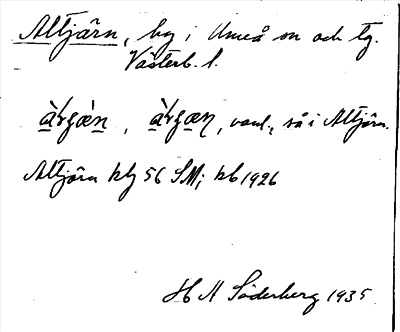 Altjärn, by i Umeå sn och tg.
Västerb. l.
vanl., så i Altjärn.
Altjärn hfj 56 SM; kb 1926
H N Söderberg 1935